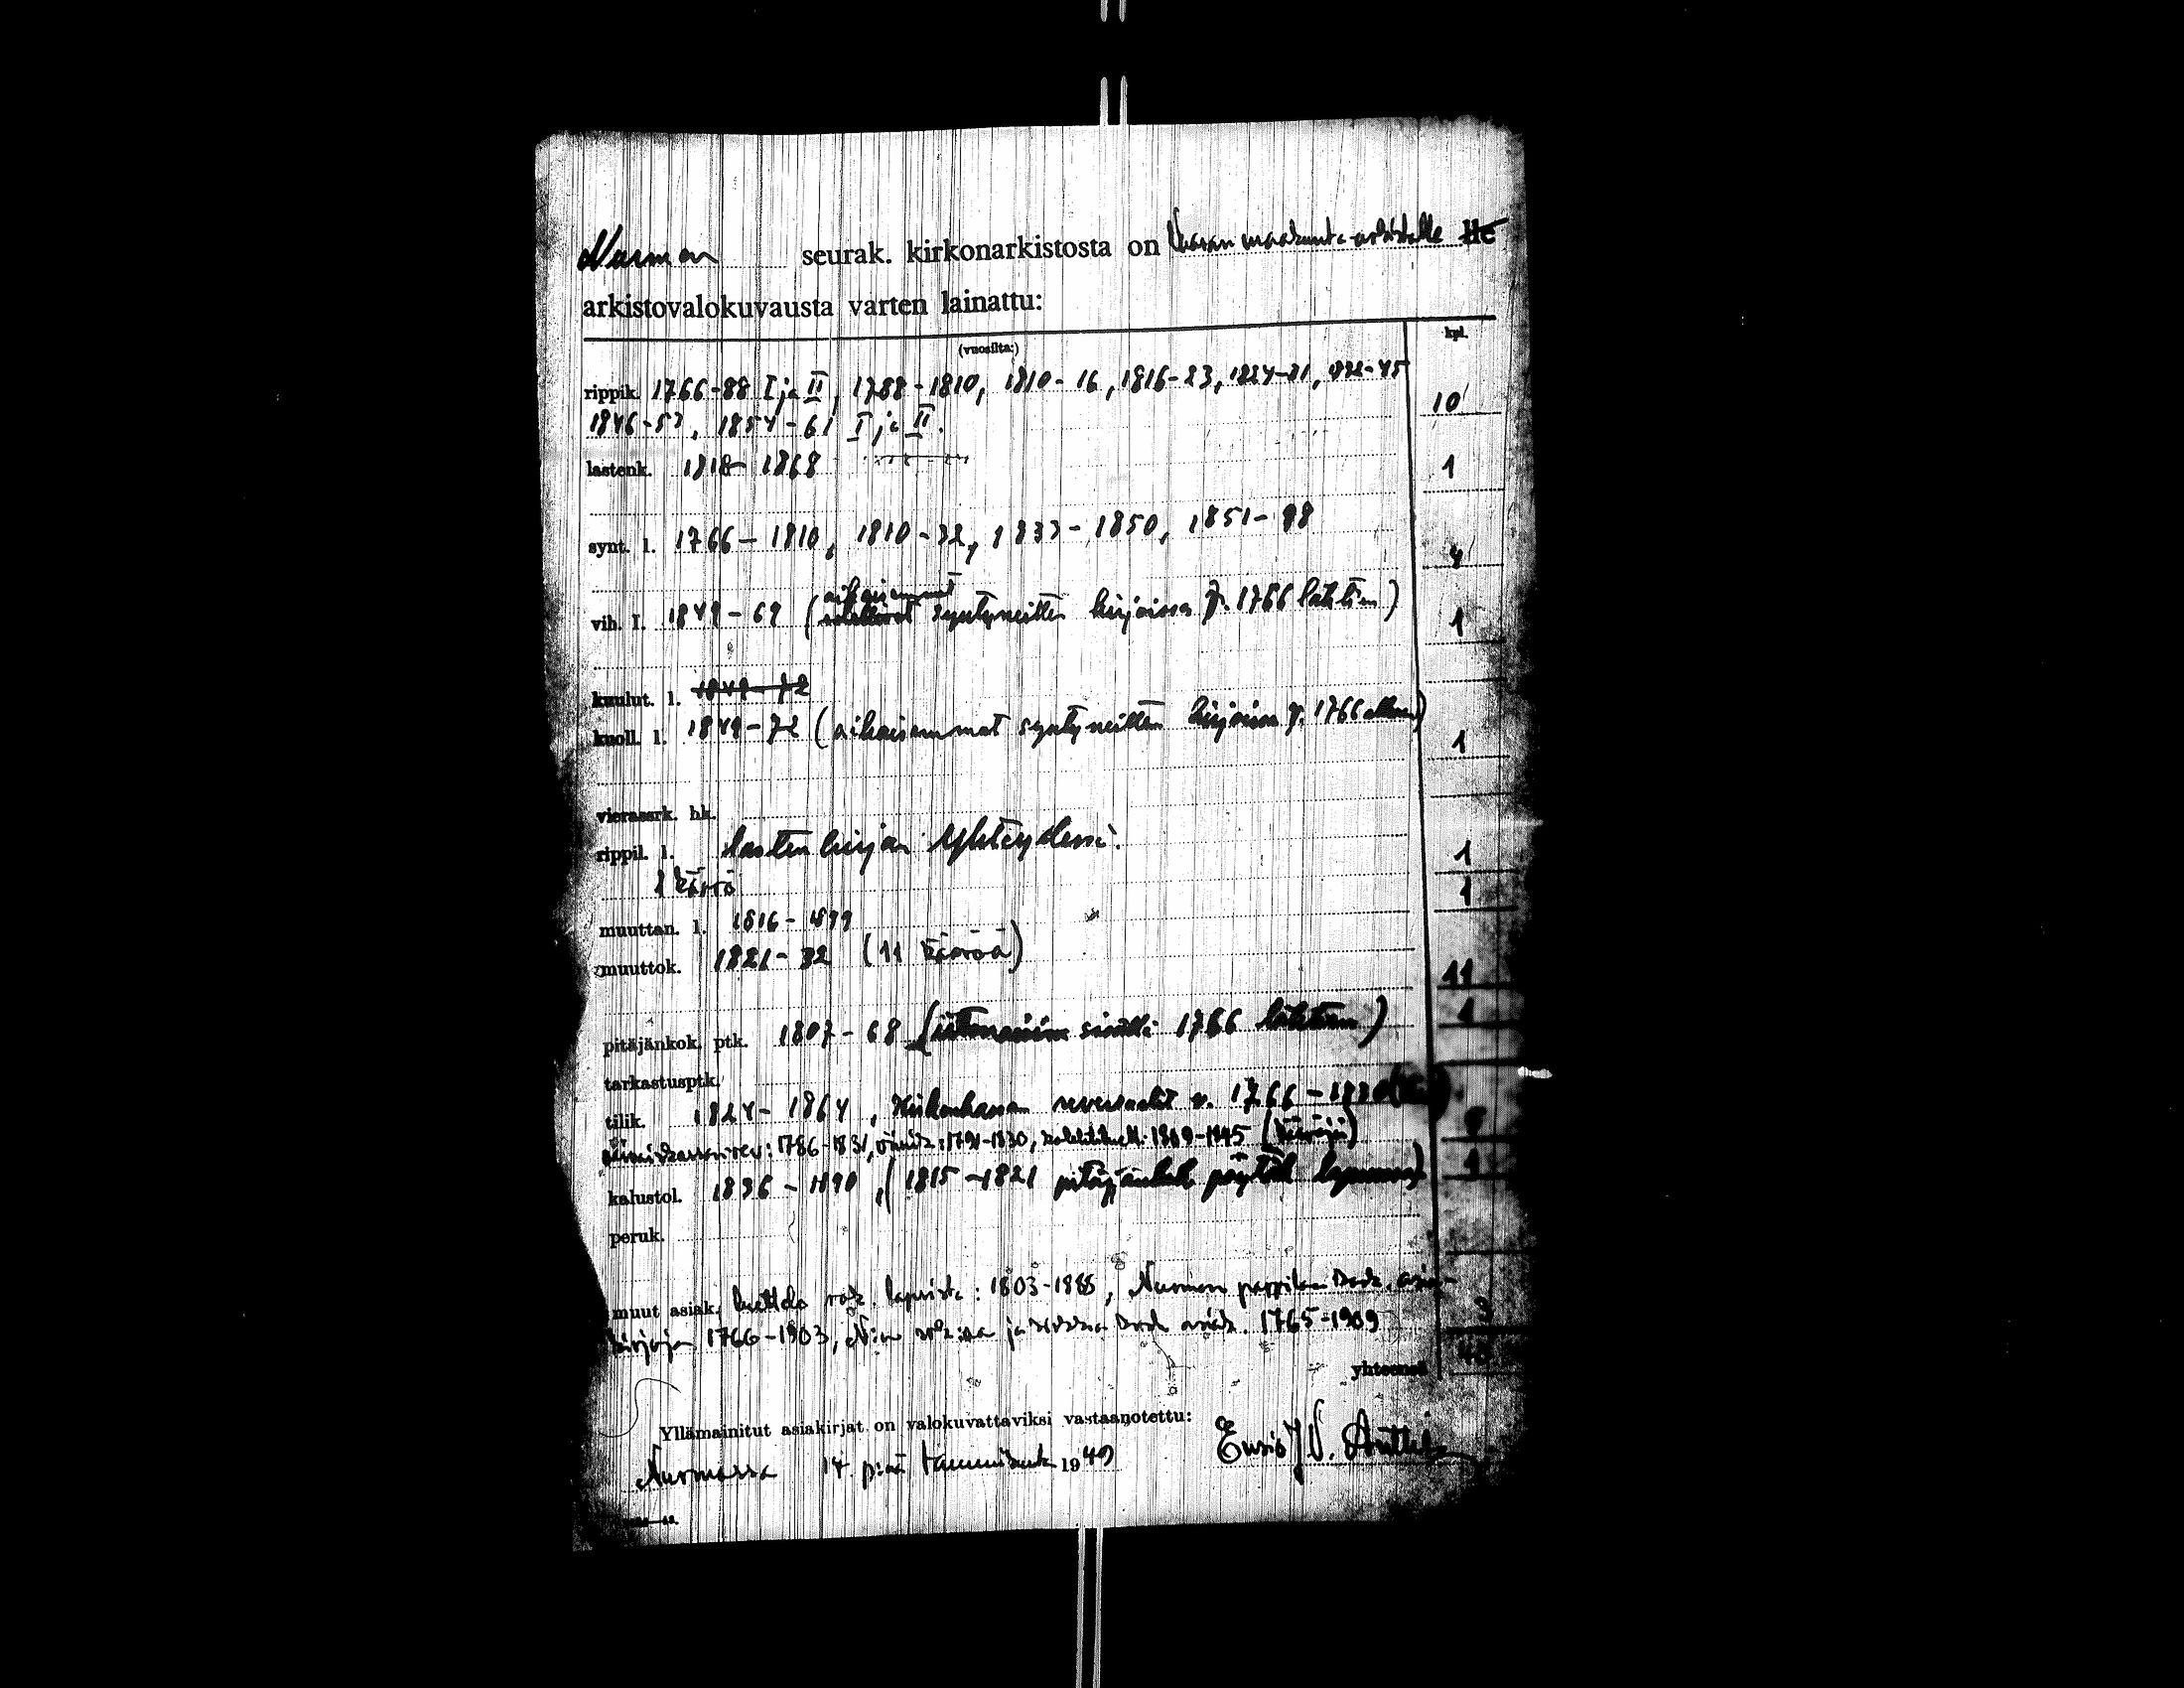 Nurmon seurak. kirkonarkistosta on Vaasan maakunta-arkistolle He
arkistovalokuvausta varten lainattu:
kpl.
(vuosilta:)
rippik. 1766-88 I ja II, 1788-1810, 1810-16, 1816-23, 1824-31, 1832-45
10
1846-53, 1854-61 I ja II.
lastenk. 1818-1868
1
synt. l. 1766-1810, 1810-32, 1833-1850, 1851-98
4
aikaisemmat
vih. l. 1849-69 ( syntyneitten kirjoissa v. 1766 lähtien)
1
kuulut. l. 1849-72
kuoll. l. 1849-72 (aikaisemmat syntyneitten kirjoissa v. 1766 alkaen)
1
vierasark. hk.
rippil. l. lastenkirjan yhteydessä.
1
1 käärö
1
muuttan. l. 1816-1899
muuttok. 1821-32 (11 kääröä)
11
1
pitäjänkok. ptk. 1807-68 ( 1766 lähtien)
tarkastusptk.
tilik. 1824-1864, Kirkonkassan reversaalit v. 1766-1830
1786-1831, 1791-1830, 1809-1845
kalustol. 1836-1890, (1815-1821 pitäjänkok. pöytäk.
1
peruk.
muut asiak. luettelo rok. lapsista: 1803-1885, Nurmon pappilan
3
kirjoja 1766-1903, 1765-1909
yhteensä
Yllämainitut asiakirjat on valokuvattaviksi vastaanotettu:
Nurmossa 14 p:nä tammikuuta 1949